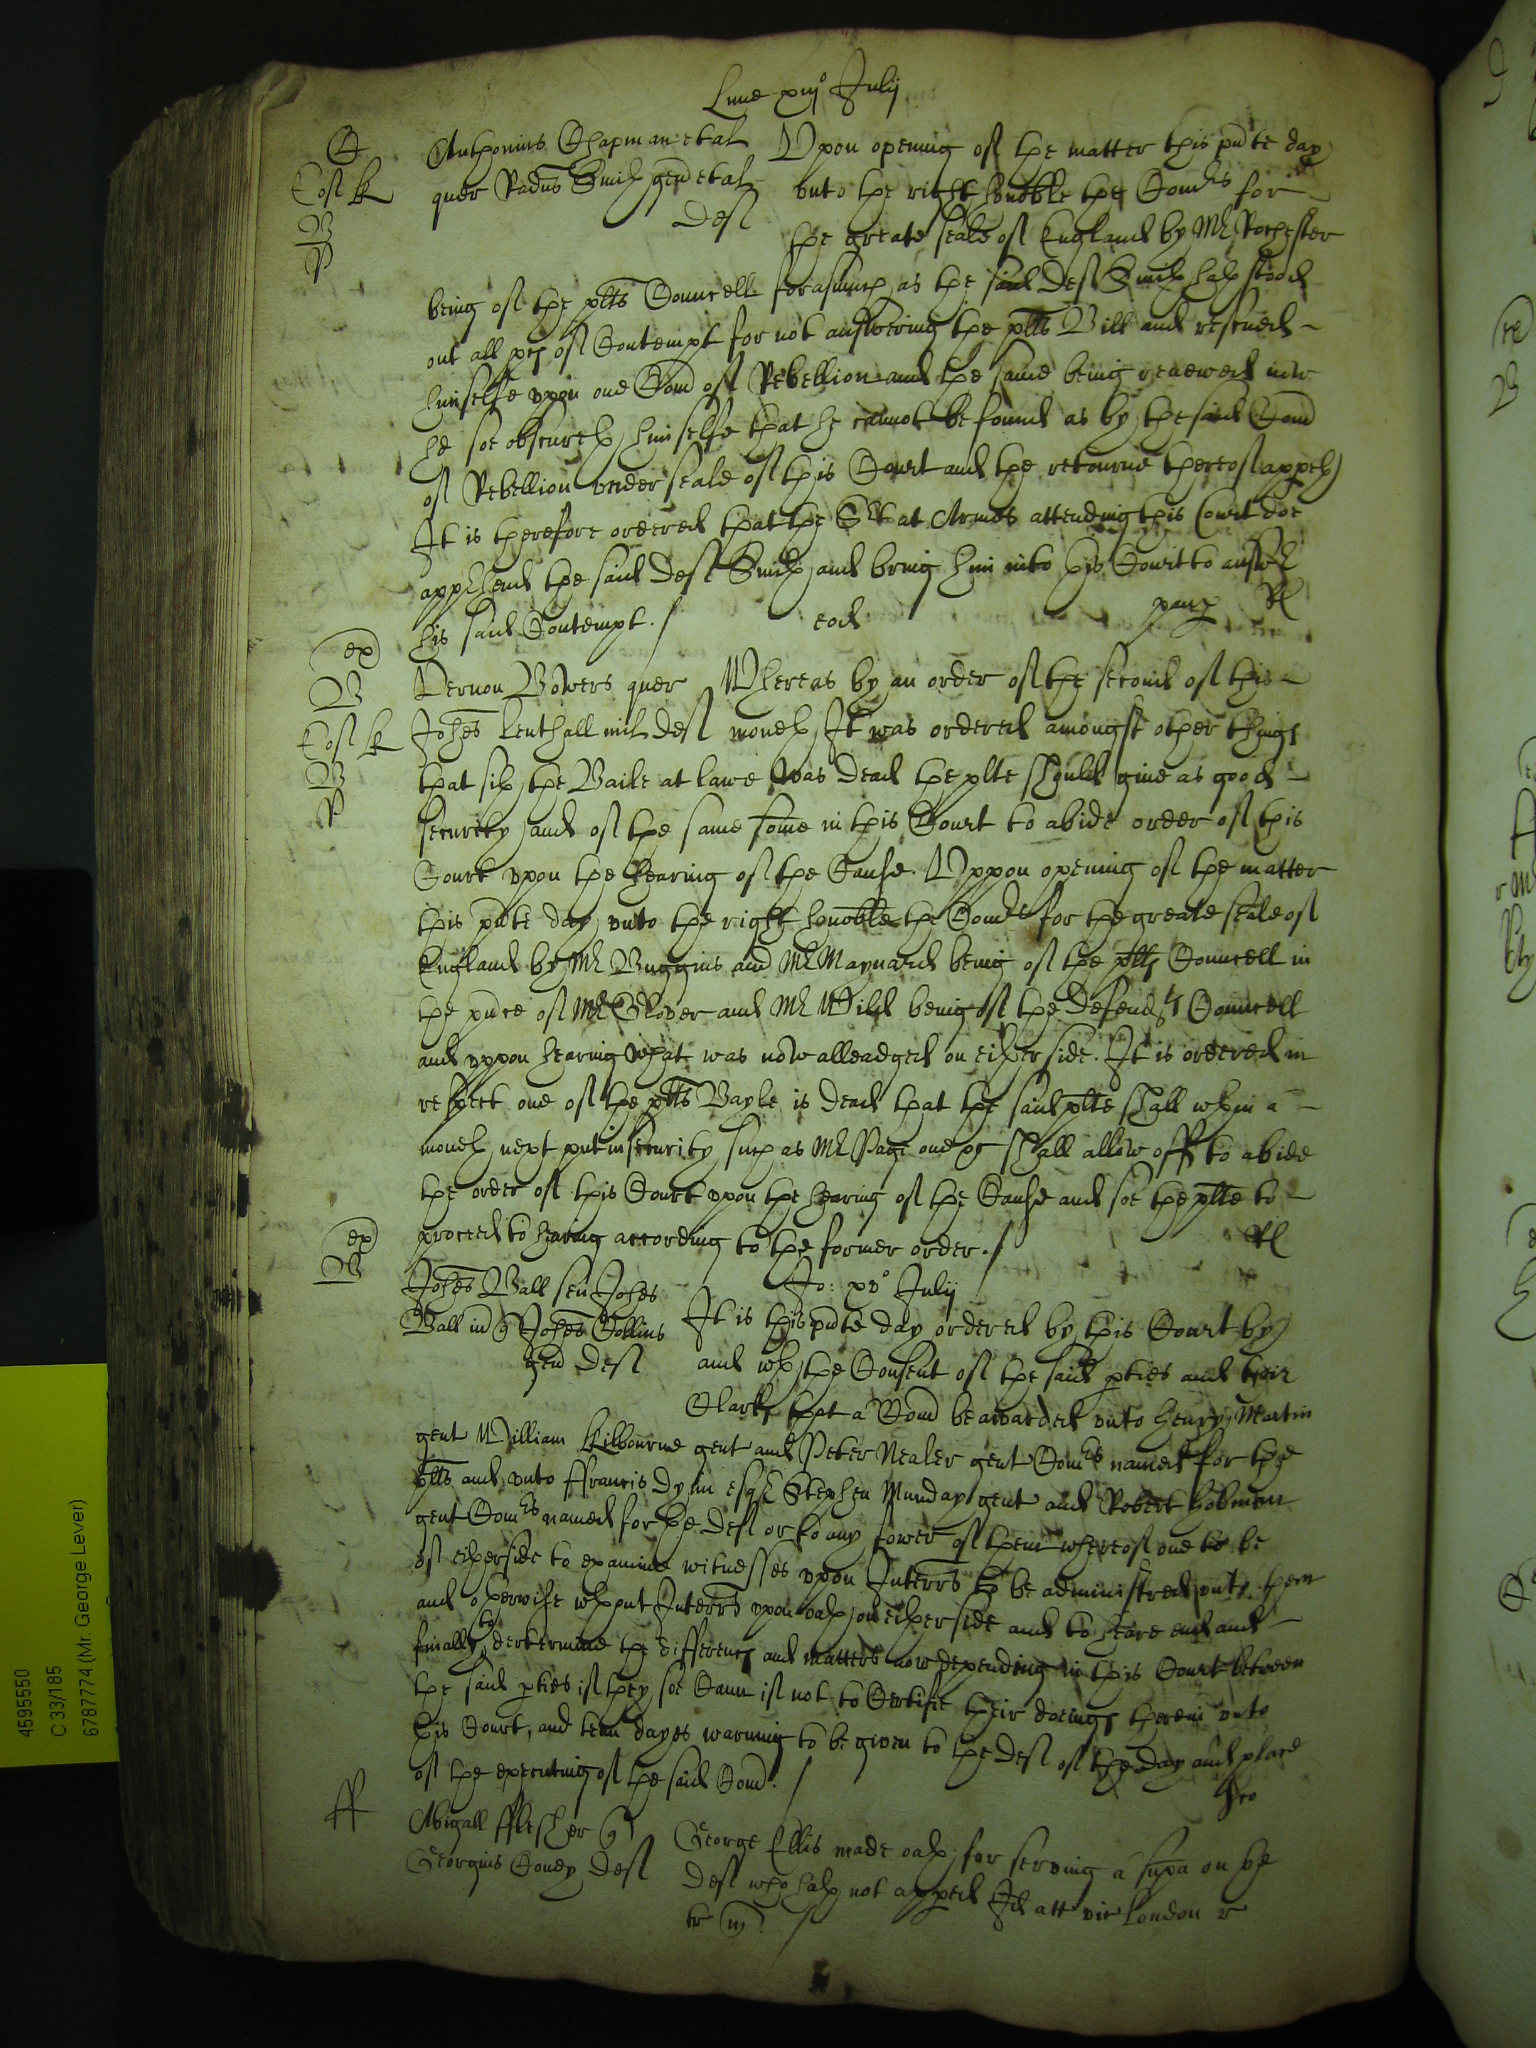 Lune xiij° Julij
Anthonius Chapman et al
quer Radus Smith gen et al
Deft
Upon opening of the matter this pnte day
unto the right honoble the Comrs for
the greate seale of England by Mr Rochester
being of the plts Councell forasmuch as the said Deft Smith hath stood
out all pcs of Contempt for not answering the plts Bill and rescued
himselfe upon one Com of Rebellion and the same being renewed now
he soe obscureth himselfe that he cannot be found as by the said Com
of Rebellion under seale of this Court and the retourne thereof appeth
It is therefore ordered that the Srt at Armes attending this Court doe
apprhend the said Deft Smith and bring him into this Court to answr
his said Contempt. /
eod
Rl
ex
Vernon Bowers quer
Johes Lenthall mil Deft
Whereas by an order of the second of this
moneth It was ordered amongst other things
that sith the Baile at lawe was dead the plte should give as good
security and of the same some in this Court to abide order of this
Court upon the hearing of the Cause. Uppon opening of the matter
this pnte day unto the right honoble the Comrs for the greate seale of
England by Mr Buggins and Mr Maynard being of the plts Councell in
the pnce of Mr Glover and Mr Wild being of the Defendts Councell
and uppon hearing what was now alleadged on either side. It is ordered in
respect one of the plts Bayle is dead that the said plte shall wthin a
moneth next put in security such as Mr Page one &c shall allow off to abide
the order of this Court upon the hearing of the Cause and soe the plte to
proceed to hearing according to the former order. /
Rl
ex
Jo: xv° Julij
Johes Ball sen Johes
Ball iun q Johes Collins
gen Deft
It is this pnte day ordered by this Court by
and wth the Consent of the said pties and their
Clarks that a Com be awarded unto Henry Martin
gent William Kilbourne gent and Peter Nealer gent Comrs named for the
plts and unto ffrancis Dynn esqr Stephen Munday gent and Robert Hobman
gent Comrs named for the Deft or to any fower of them whereof one to be
of either side to examine witnesses upon Interrs to be administred unto them
and otherwise wthout Interrs upon oath on either side and to heare end and
finally to dertermine the differencs and matters now depending in this Court betweene
the said pties if they soe Cann if not to Certifie their doeings therein unto
this Court, and tenn dayes warning to be given to the Deft of the day and place
of the executing of the said Com. /
ff
Abigall fflesher q
Georgius Coney Deft
George Ellis made oath for serving a supa on the
Deft who hath not apped Id att vic London r
tr m /
4595550
C 33/185
6787774 (Mr. George Lever)